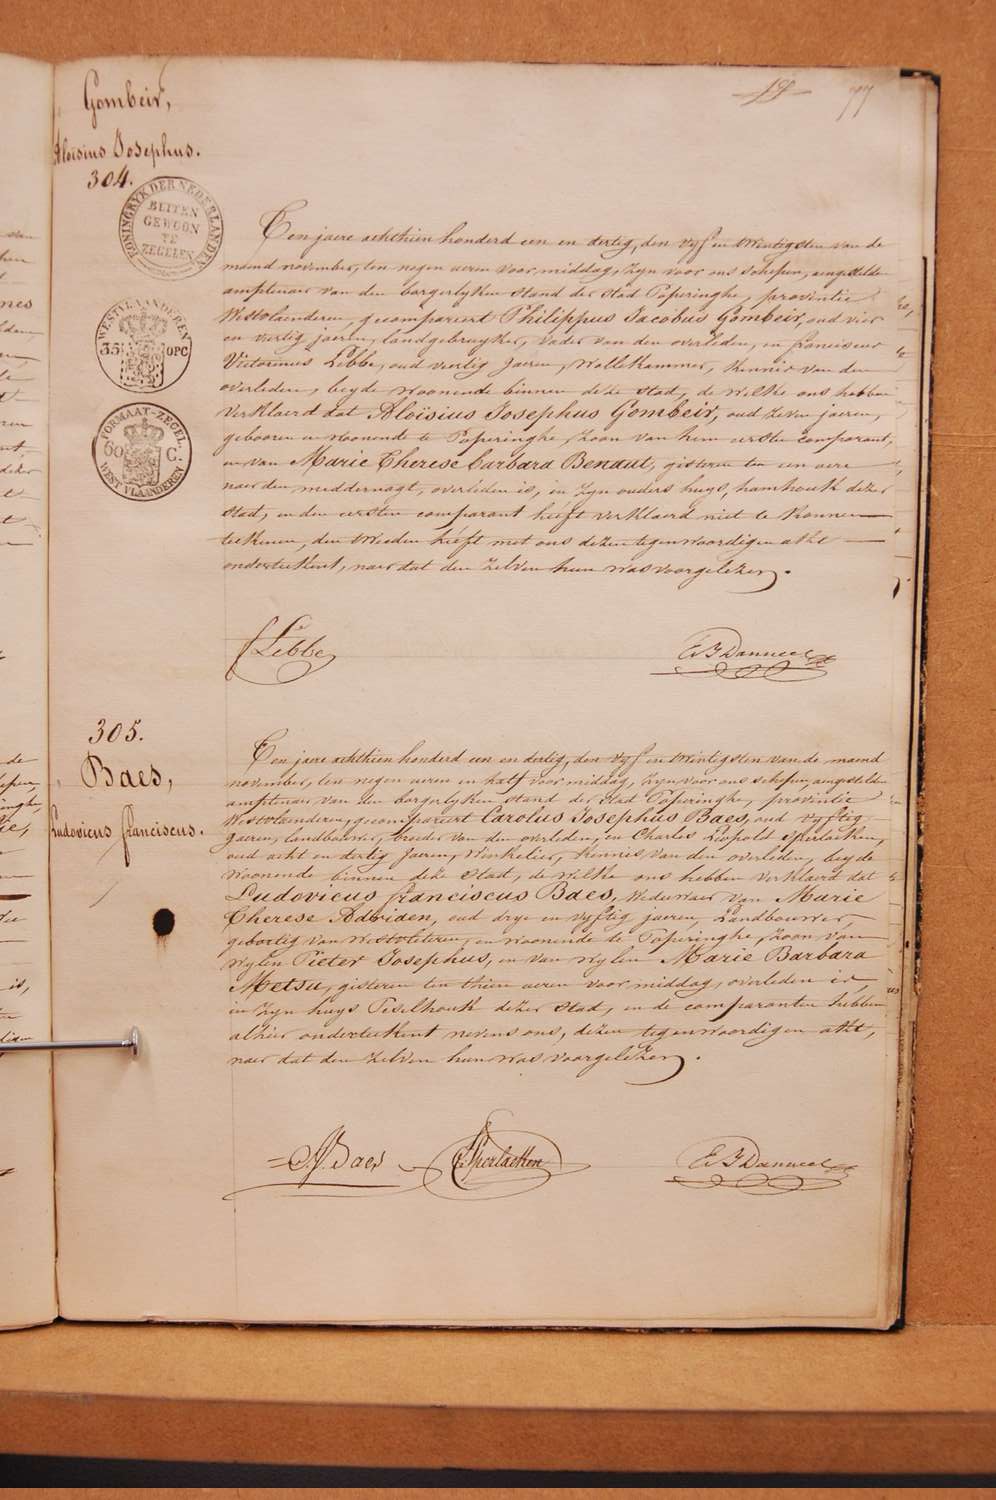 77
Gombeir,
Aloïsius Josephus.
304.
KONINGRYK DER NEDERLANDEN
BUITEN
GEWOON
TE
ZEGELEN
WESTVLAANDEREN
35 OPC
FORMAAT-ZEGEL
60 C.
WEST VLAANDEREN
Ten jaere achthien honderd een en dertig, den vyf en twintigsten van de
maend november, ten negen ueren voor middag, zyn voor ons schepen, aengestelde
amptenaer van den borgerlyken stand der stad Poperinghe, provintie
Westvlaenderen, gecompareert Philippus Jacobus Gombeir, oud vier
en veertig jaeren, landgebruyker, vader van den overleden, en franciscus
Victorinus Lebbe, oud veertig Jaeren, Wollekammer, kennis van den
overleden, beyde woonende binnen deze stad, de welke ons hebben
verklaerd dat Aloïsius Josephus Gombeir, oud zeven jaeren,
gebooren en woonende te Poperinghe, zoon van hem eersten comparant,
en van Marie Therese Barbara Benaut, gisteren ten een uere
naer den middernagt, overleden is, in zyn ouders huys, hamhouk dezer
stad, en den eersten comparant heeft verklaerd niet te konnen
teekenen, den tweeden heeft met ons dezen tegenwoordigen akte
onderteekent, naer dat den zelven hun was voorgelezen.
Lebbe
305.
Baes,
Ludovicus franciscus.
Ten jaere achthien honderd een en dertig, den vyf en twintigsten van de maend
november, ten negen ueren en half voor middag, zyn voor ons schepen, aengestelden
amptenaer van den borgerlyken stand der stad Poperinghe, provintie
Westvlaenderen, gecompareert Carolus Josephus Baes, oud vyftig
jaeren, landbouwer, broeder van den overleden, en Charles Leopold Sperlaeken,
oud acht en dertig Jaeren, Winkelier, kennis van den overleden, beyde
woonende binnen deze stad, de welke ons hebben verklaerd dat
Ludovicus franciscus Baes, weduwaer van Marie
Therese Adriden, oud drye en vyftig jaeren, Landbouwer,
gebortig van Westvleteren, en woonende te Poperinghe, zoon van
wylen Pieter Josephus, en van wylen Marie Barbara
Metsu, gisteren ten thien ueren voor middag, overleden is,
in zyn huys Peselhouk dezer stad, en de comparanten hebben
alhier onderteekent nevens ons, dezen tegenwoordigen akte,
naer dat den zelven hun was voorgelezen.
Baes Sperlaeken